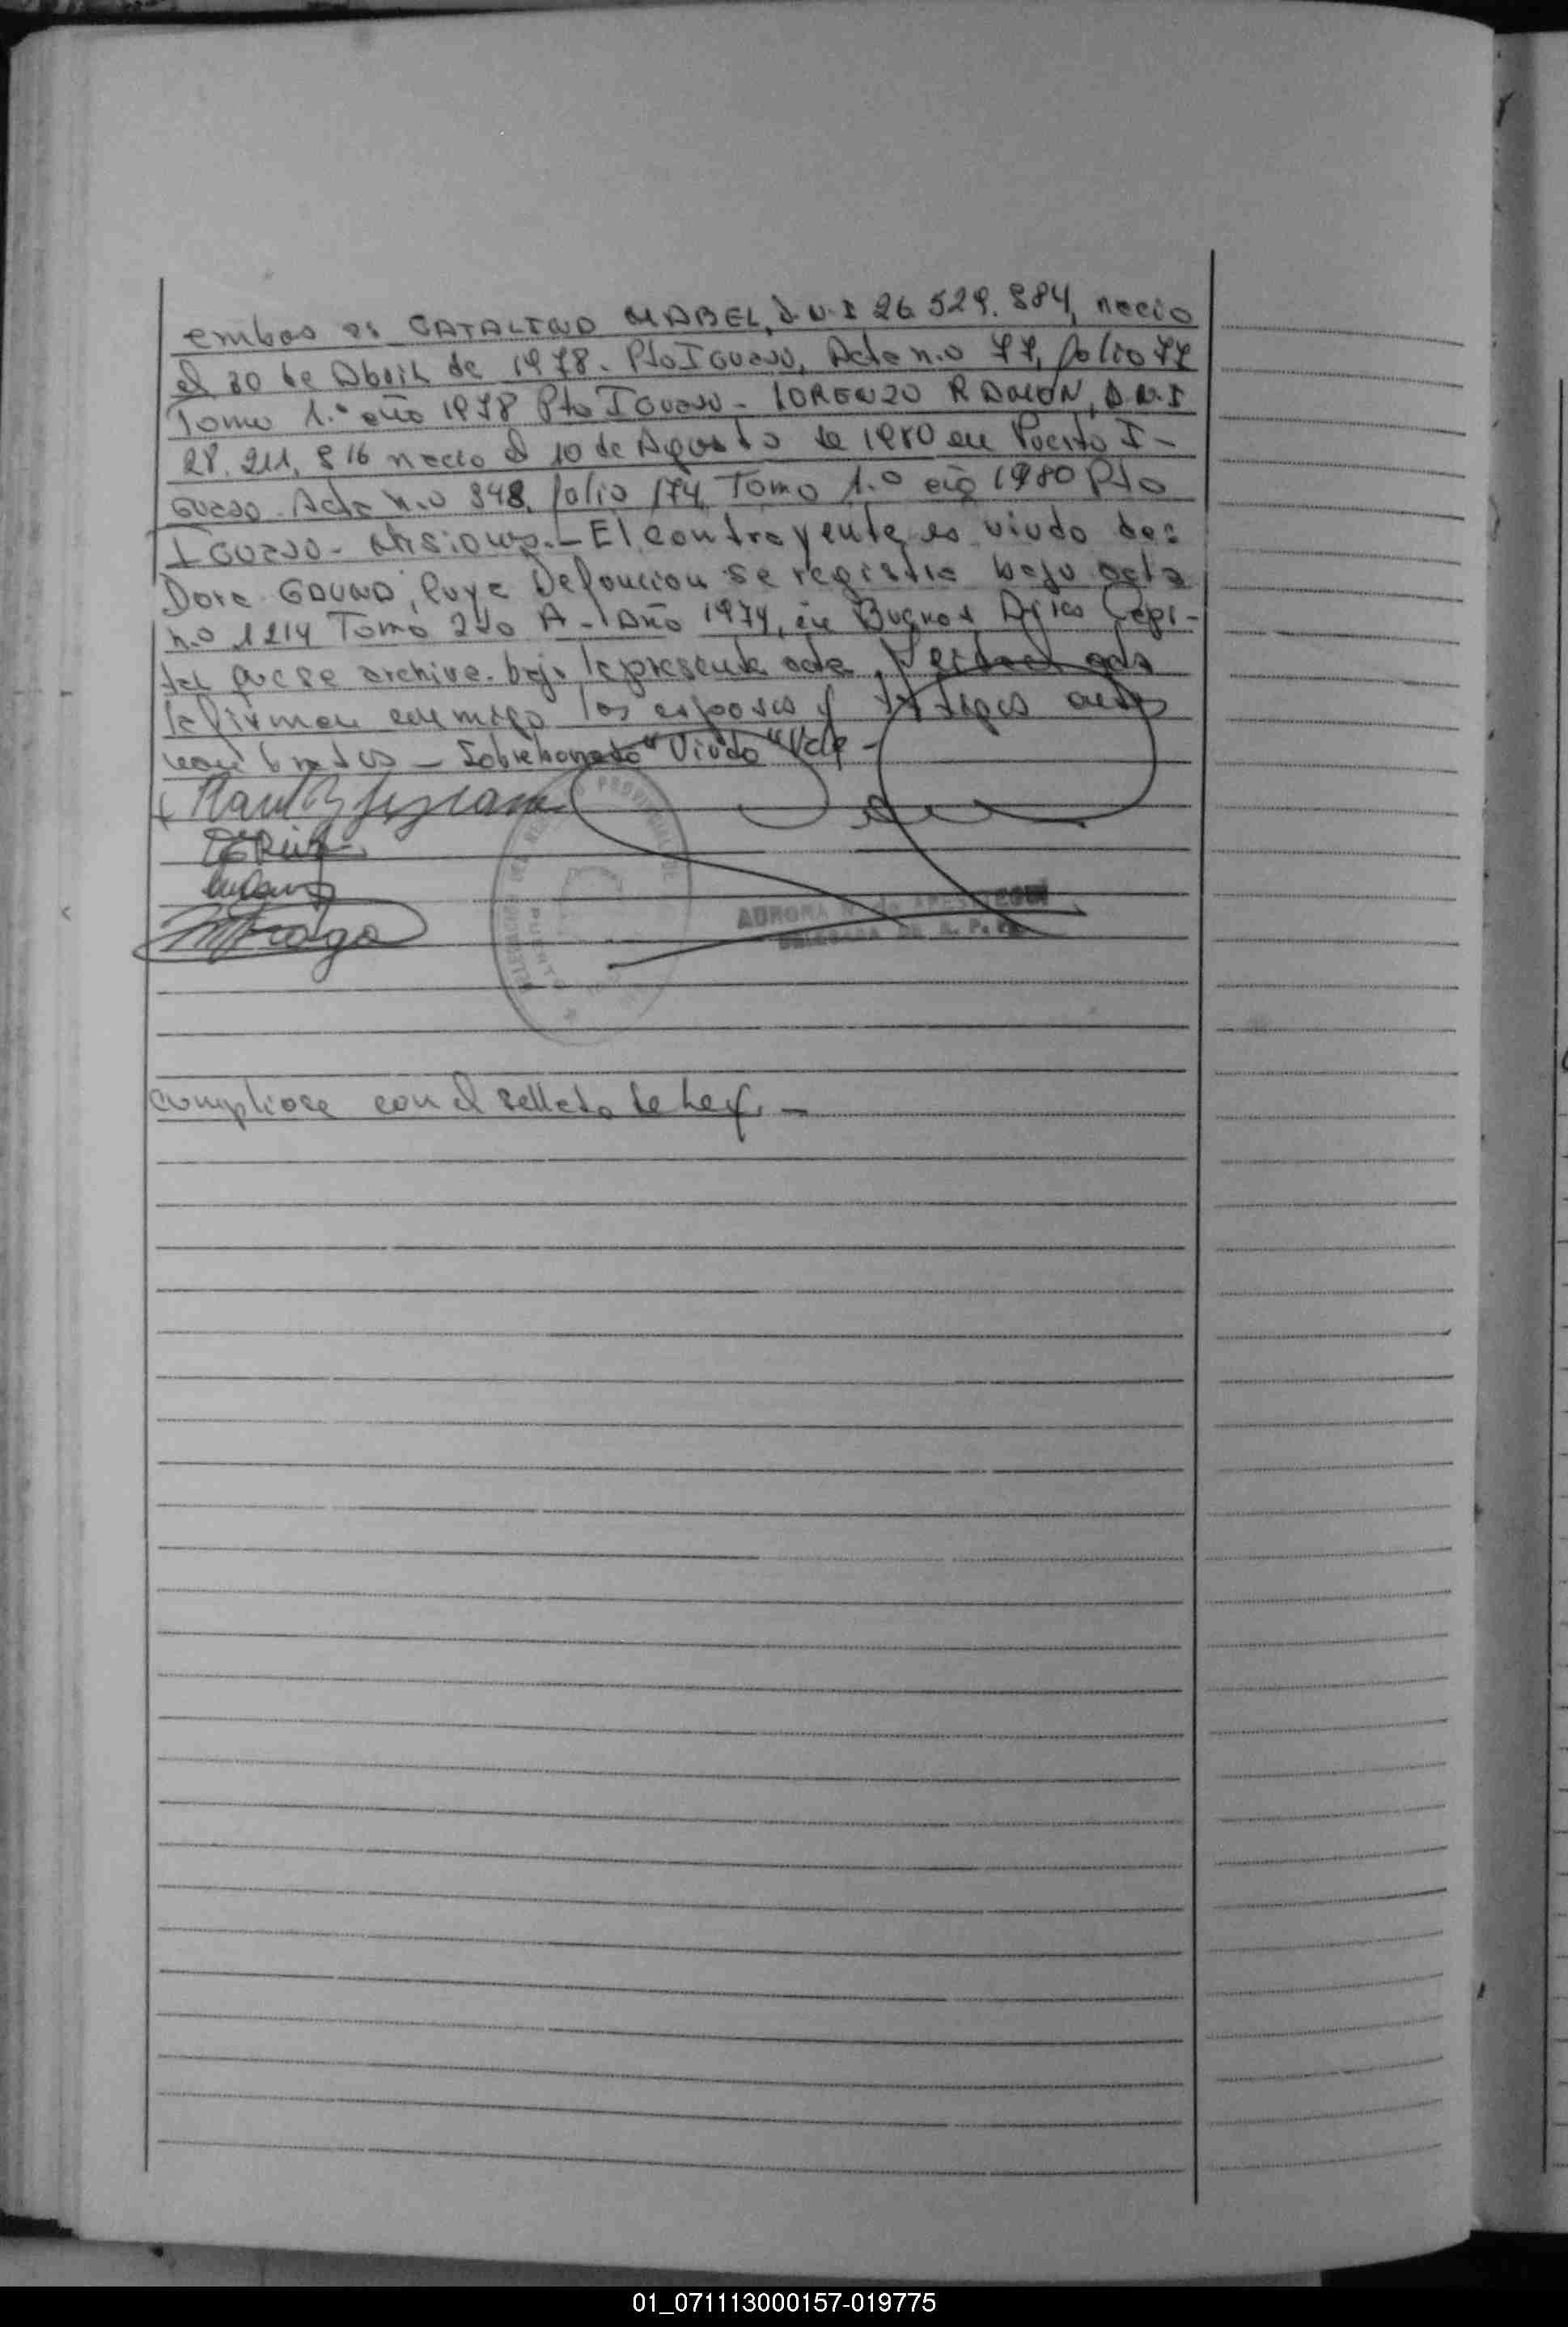 ambos es CATALINO MABEL, D.N.I 26.529.884, nacio
el 30 de Abril de 1978. Pto Iguazu, Acta n.o 77, folio 77
Tomo 1.º año 1978 Pto Iguazu - LORENZO RAMON, D.N.I
28.211.816 nacio el 10 de Agosto de 1980 en Puerto I-
guazu. Acta n.o 348, folio 174, Tomo 1.º año 1980 Pto
Iguazu - Misiones. - El contrayente es viudo de:
Dora GAUNA, Cuya Defuncion se registra bajo acta
n.o 1214 Tomo 2do A - Año 1974, en Buenos Aires Capi-
tal que se archiva bajo la presente acta, acta
la firman conmigo los esposos y testigos antes
nombrados - Sobreborrado "Viudo" Vale -
AURORA DELEGADA
Cumpliose con el sellado de Ley. -
01_071113000157-019775